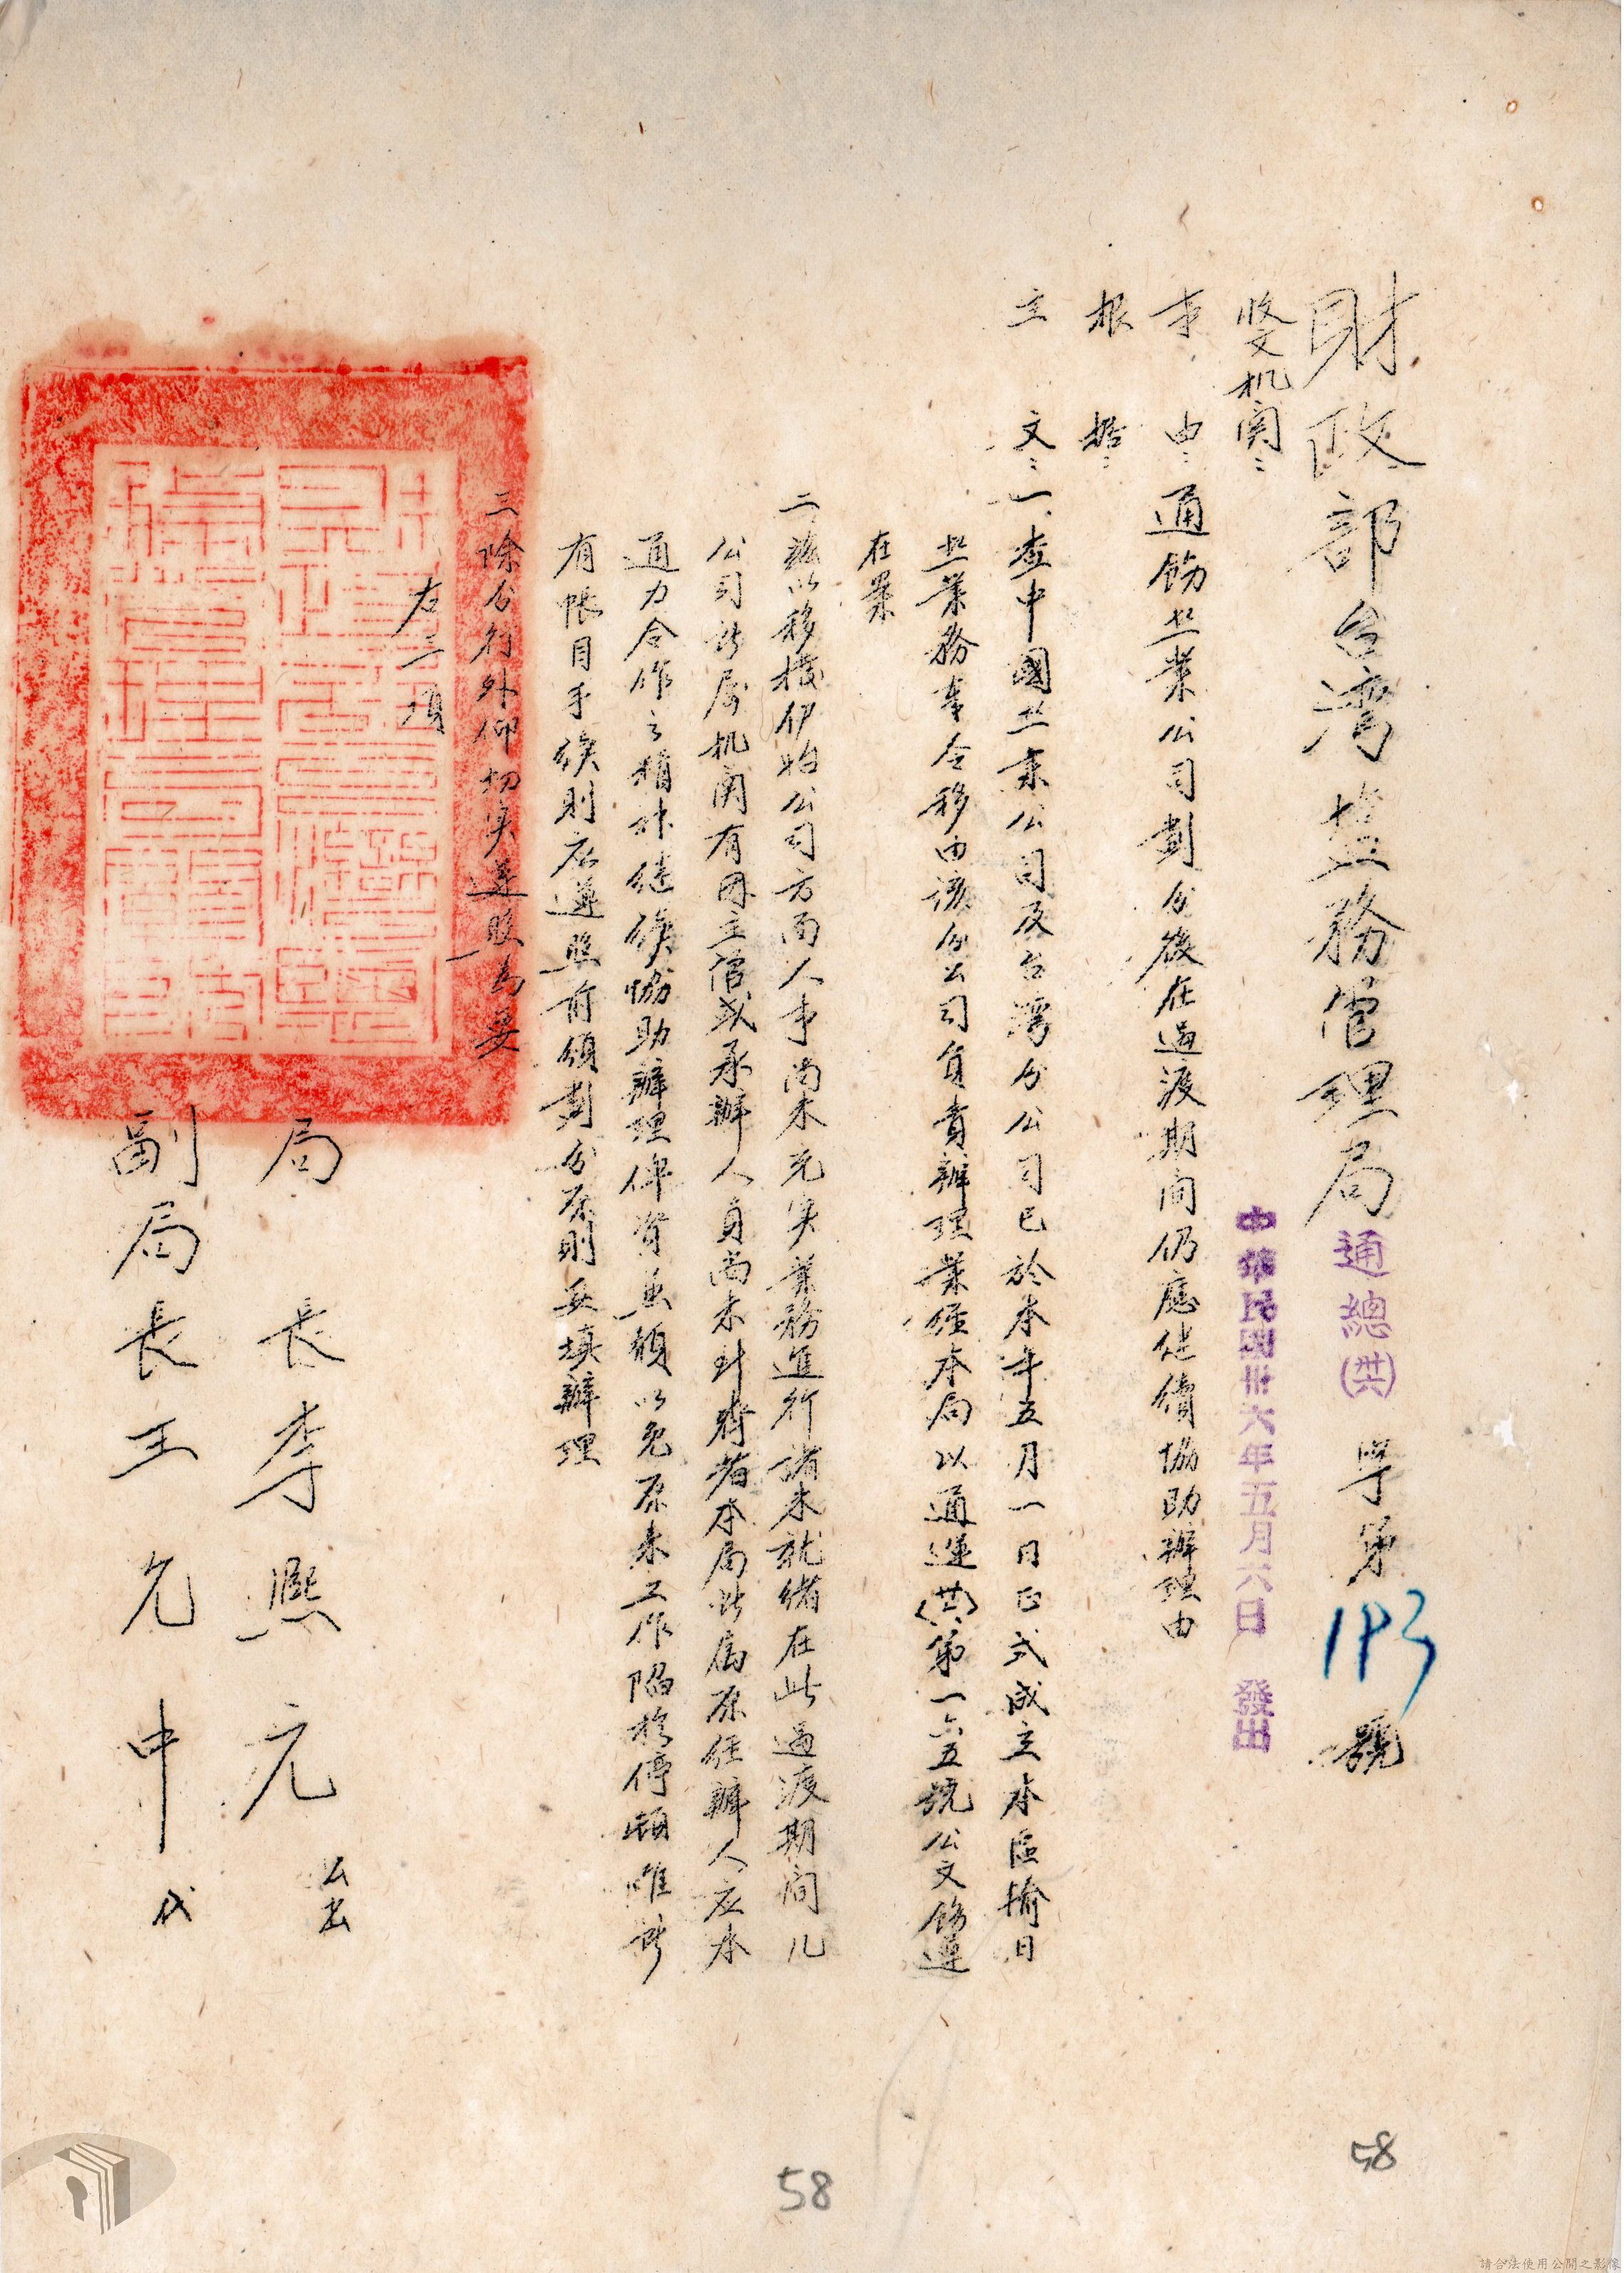 財政部台湾盐務管理局通總(卅六)字第193號
中華民國卅六年五月六日 發出
收文机関：
事由：通飭盐業公司劃分後在過渡期间仍應继續協助辦理由
根据：
主文：一、查中國盐業公司及台湾分公司已於本年五月一日正式成立本區揄日
盐業務奉令移由該分公司負責辦理業經本局以通運(卅六)第一六五號公文飭遵
在案
二、茲以移接伊始公司方面人事尚未充实業務進行諸未就緒在此過渡期间凡
公司所属机関有因主管或承辦人員尚未到府者本局所属原任辦人应本
通力合作之精神继續協助辦理俾資兼顧以免原来工作陷於停頓唯所
有帐目手续則应遵照前頒劃分原則妥填辦理
三、除分行外仰切实遵照為要
右三項
局長李熙元 公出
副局長王允中 代
58
58
請合法使用公開之影像